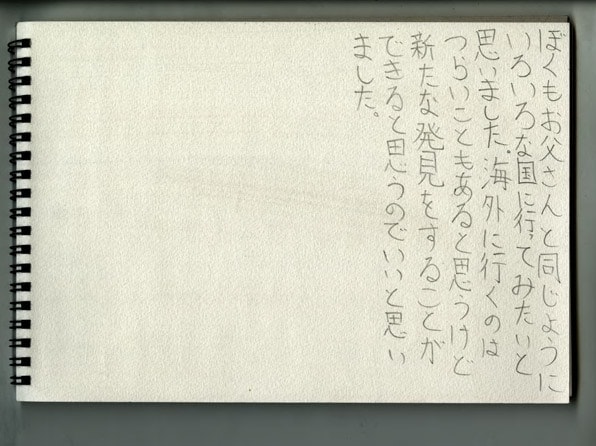 ぼくもお父さんと同じように
いろいろな国に行ってみたいと
思いました。海外に行くのは
つらいこともあると思うけど
新たな発見をすることが
できると思うのでいいと思い
ました。